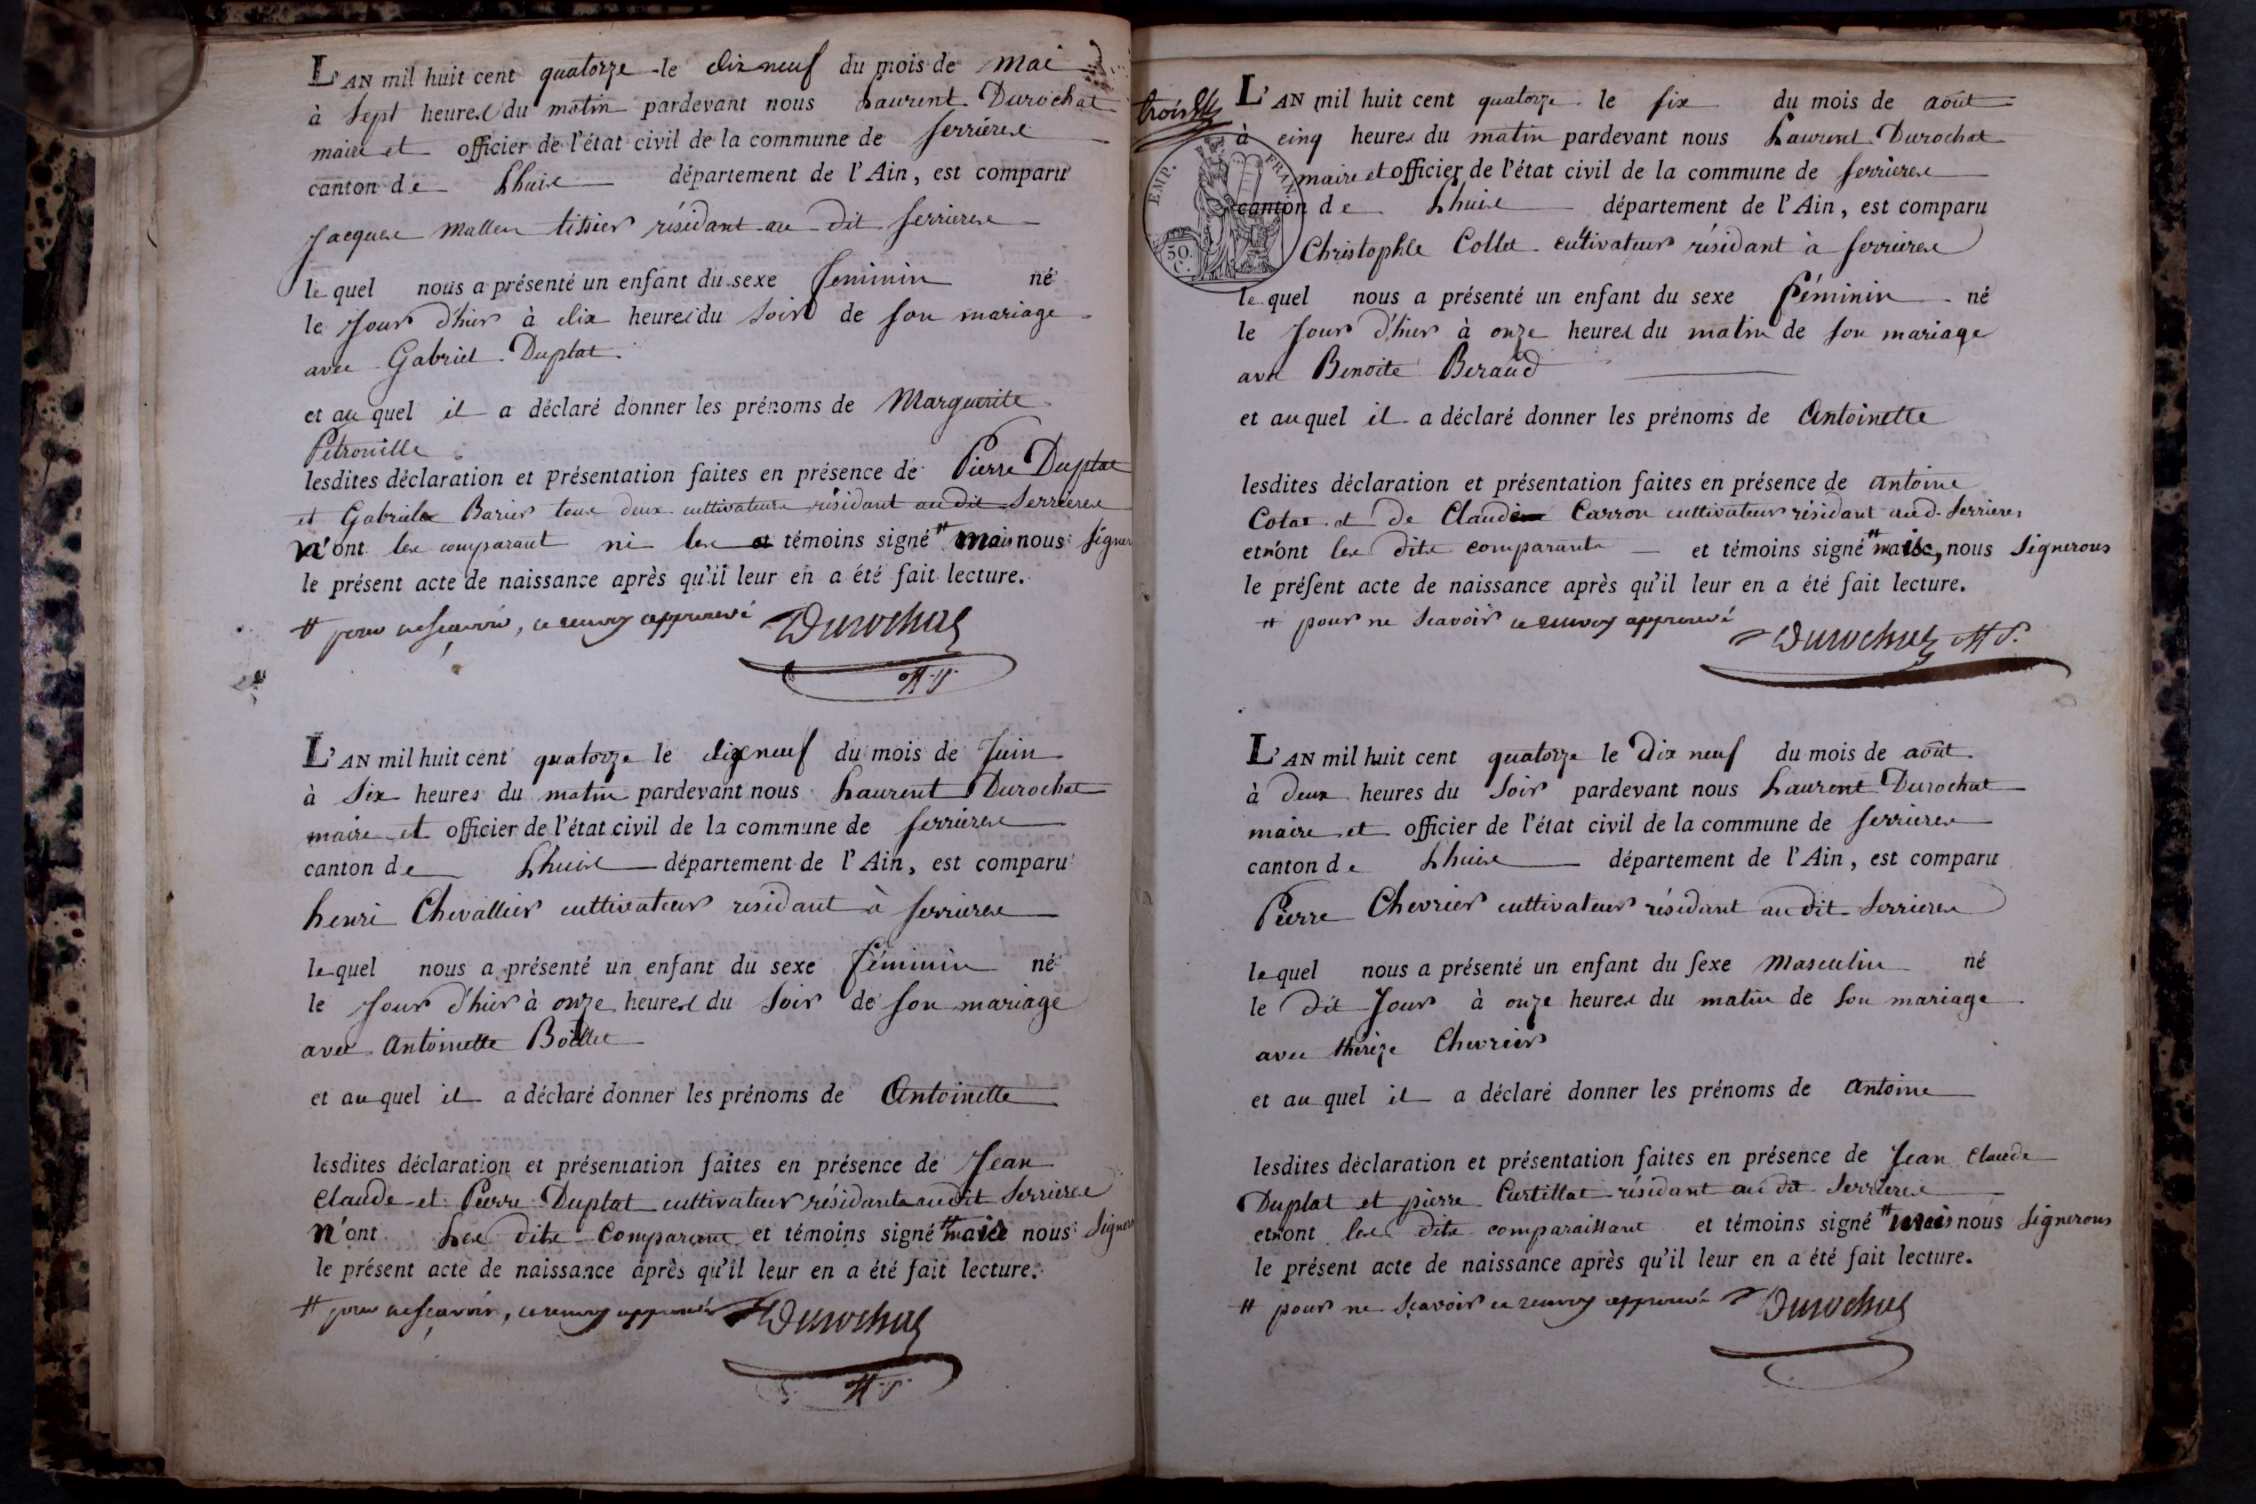 L'AN mil huit cent quatorze le dix neuf du mois de Mai
à Sept heures du matin pardevant nous Laurent Durochat
maire et officier de l'état civil de la commune de Serrieres
canton de Lhuis département de l'Ain, est comparu
Jacques Mallen tissier résidant au dit Serrieres
le quel nous a présenté un enfant du sexe feminin né
le Jour d'hier à dix heures du Soir de son mariage
avec Gabriel Duplat
et au quel il a déclaré donner les prénoms de Marguerite
Petronille
lesdites déclaration et présentation faites en présence de Pierre Duplat
et Gabriel Barier tous deux cultivateurs résidant au dit Serrieres
n'ont les comparant ni les témoins signé # mais nous Signer
le présent acte de naissance après qu'il leur en a été fait lecture.
# pour ne sçavoir, ce renvoy approuvé Durochat
L'AN mil huit cent quatorze le dix neuf du mois de Juin
à Six heures du matin pardevant nous Laurent Durochat
maire et officier de l'état civil de la commune de Serrieres
canton de Lhuis département de l'Ain, est comparu
henri Chevallier cultivateur residant à Serrieres
le quel nous a présenté un enfant du sexe féminin né
le Jour d'hier à onze heures du Soir de son mariage
avec Antoinette Bolliet
et au quel il a déclaré donner les prénoms de Antoinette
lesdites déclaration et présentation faites en présence de Jean
Claude et Pierre Duplat cultivateur résidants au dit Serrieres
n'ont Les dits Comparant et témoins signé # mais nous Signero
le présent acte de naissance après qu'il leur en a été fait lecture.
# pour ne sçavoir, ce renvoy approuvé Durochat
trois
EMP. FRAN.
50 C.
L'AN mil huit cent quatorze le six du mois de août
à cinq heures du matin pardevant nous Laurent Durochat
maire et officier de l'état civil de la commune de Serrieres
canton de Lhuis département de l'Ain, est comparu
Christophle Collet cultivateur résidant à Serrieres
le quel nous a présenté un enfant du sexe féminin né
le Jour d'hier à onze heures du matin de son mariage
avec Benoite Beraud
et au quel il a déclaré donner les prénoms de Antoinette
lesdites déclaration et présentation faites en présence de Antoine
Cotat et de Claude Carron cultivateur résidant aud. Serrieres
et n'ont les dits comparants et témoins signé # mais nous Signerons
le présent acte de naissance après qu'il leur en a été fait lecture.
# pour ne Scavoir ce renvoy approuvé
Durochat
L'AN mil huit cent quatorze le Dix neuf du mois de août
à deux heures du Soir pardevant nous Laurent Durochat
maire et officier de l'état civil de la commune de Serrieres
canton de Lhuis département de l'Ain, est comparu
Pierre Chevrier cultivateur résidant au dit Serrieres
le quel nous a présenté un enfant du sexe Masculin né
le dit Jour à onze heures du matin de Son mariage
avec thérèze Chevrier
et au quel il a déclaré donner les prénoms de Antoine
lesdites déclaration et présentation faites en présence de Jean Claude
Duplat et pierre Curtillat résidant au dit Serrieres
et n'ont les dits comparaissant et témoins signé # mais nous Signerons
le présent acte de naissance après qu'il leur en a été fait lecture.
# pour ne Sçavoir ce renvoy approuvé Durochat